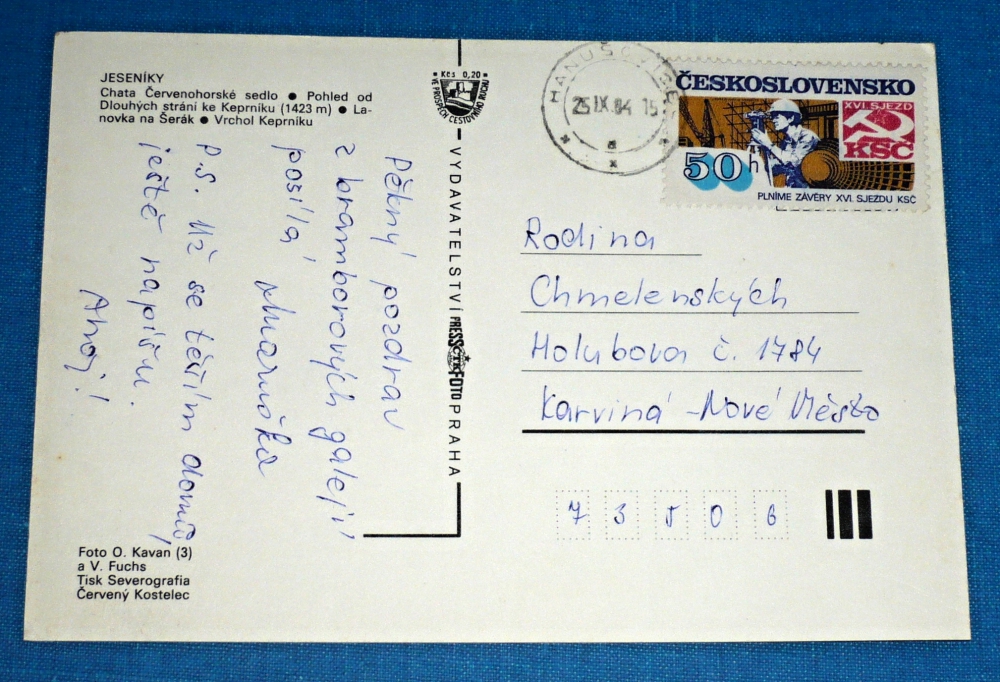 JESENÍKY
Chata Červenohorské sedlo ● Pohled od
Dlouhých strání ke Keprníku (1423 m) ● La-
novka na Šerák ● Vrchol Keprníku
Kčs 0,20
VE PROSPĚCH CESTOVNÍHO RUCHU
VYDAVATELSTVÍ PRESSFOTO PRAHA
ČTK
Pěkný pozdrav
z bramborových galejí
posílá
P.S. Už se těším domů,
ještě napíšu.
Ahoj!
Foto O. Kavan (3)
a V. Fuchs
Tisk Severografia
Červený Kostelec
HANUŠOVICE
25.IX.84 15
a
ČESKOSLOVENSKO
XVI. SJEZD
KSČ
50 h
PLNÍME ZÁVĚRY XVI. SJEZDU KSČ
Rodina
Chmelenských
Holubova č. 1784
Karviná - Nové Město
7 3 5 0 6